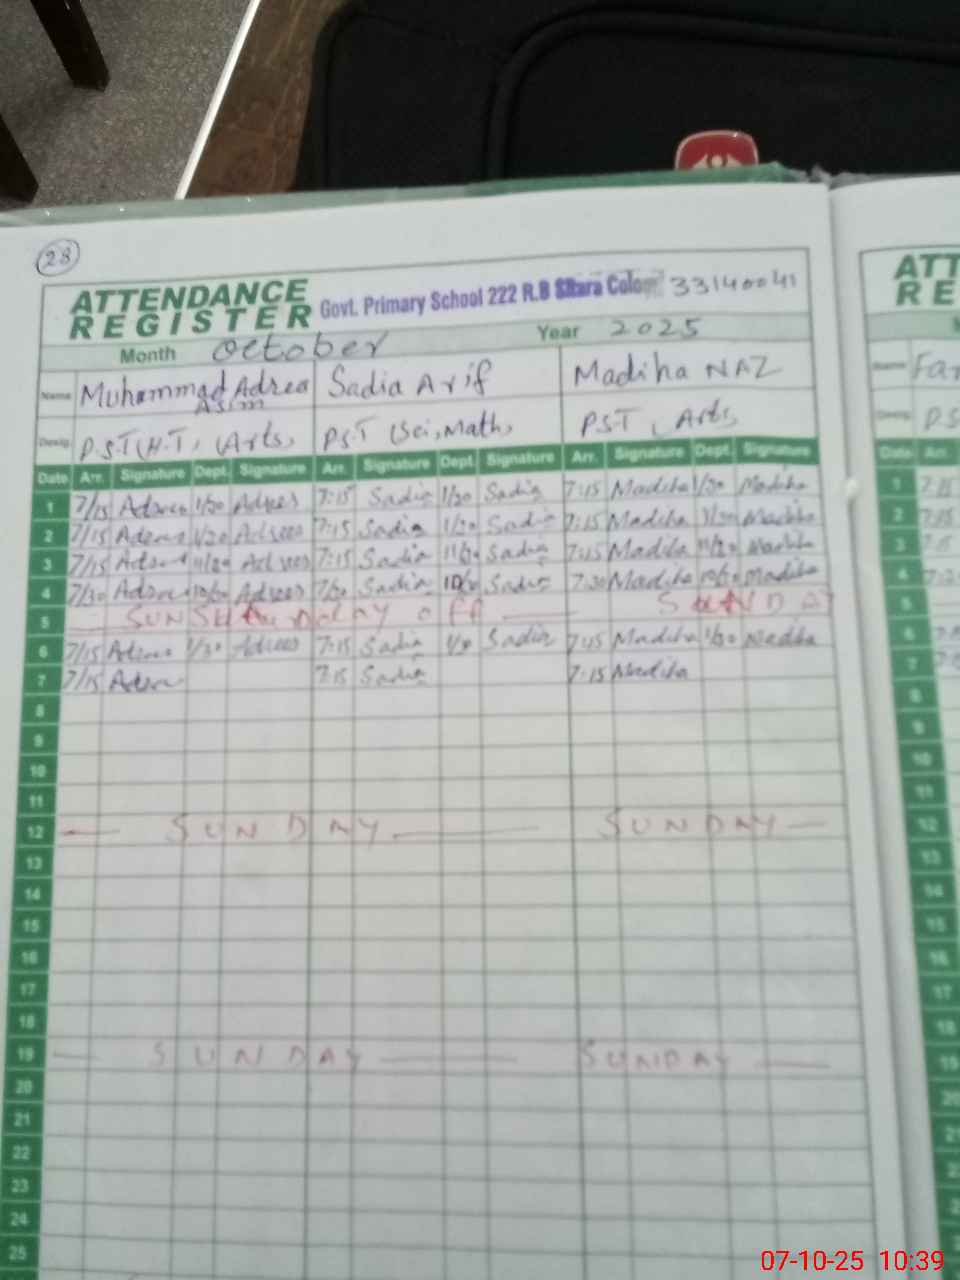 28
ATTENDANCE REGISTER Govt. Primary School 222 R.B Sitara Colony 33140041
Month October Year 2025
Name Muhammad Adrees Asim Sadia Arif Madiha NAZ
Desig. P.S.T (H.T), (Arts) P.S.T (Sci, Math) P.S.T (Arts)
Date Arr. Signature Dept. Signature Arr. Signature Dept. Signature Arr. Signature Dept. Signature
1 7/15 Adrees 1/30 Adrees 7:15 Sadia 1/30 Sadia 7:15 Madiha 1/30 Madiha
2 7/15 Adrees 1/30 Adrees 7:15 Sadia 1/30 Sadia 7:15 Madiha 1/30 Madiha
3 7/15 Adrees Adrees 7:15 Sadia Sadia 7:15 Madiha Madiha
4 7/30 Adrees Adrees 7/30 Sadia Sadia 7:30 Madiha Madiha
5 SUNDAY
6 7/15 Adrees 1/30 Adrees 7:15 Sadia Sadia 7:15 Madiha 1/30 Madiha
7 7/15 Adrees 7:15 Sadia 7:15 Madiha
8
9
10
11
12 SUNDAY SUNDAY
13
14
15
16
17
18
19 SUNDAY SUNDAY
20
21
22
23
24
25
ATT
RE
Name Far
Desig. P.S
Date Arr.
1 7:15
2 7:15
3
4
5
6
7
8
9
10
11
12
13
14
15
16
17
18
19
20
21
07-10-25 10:39